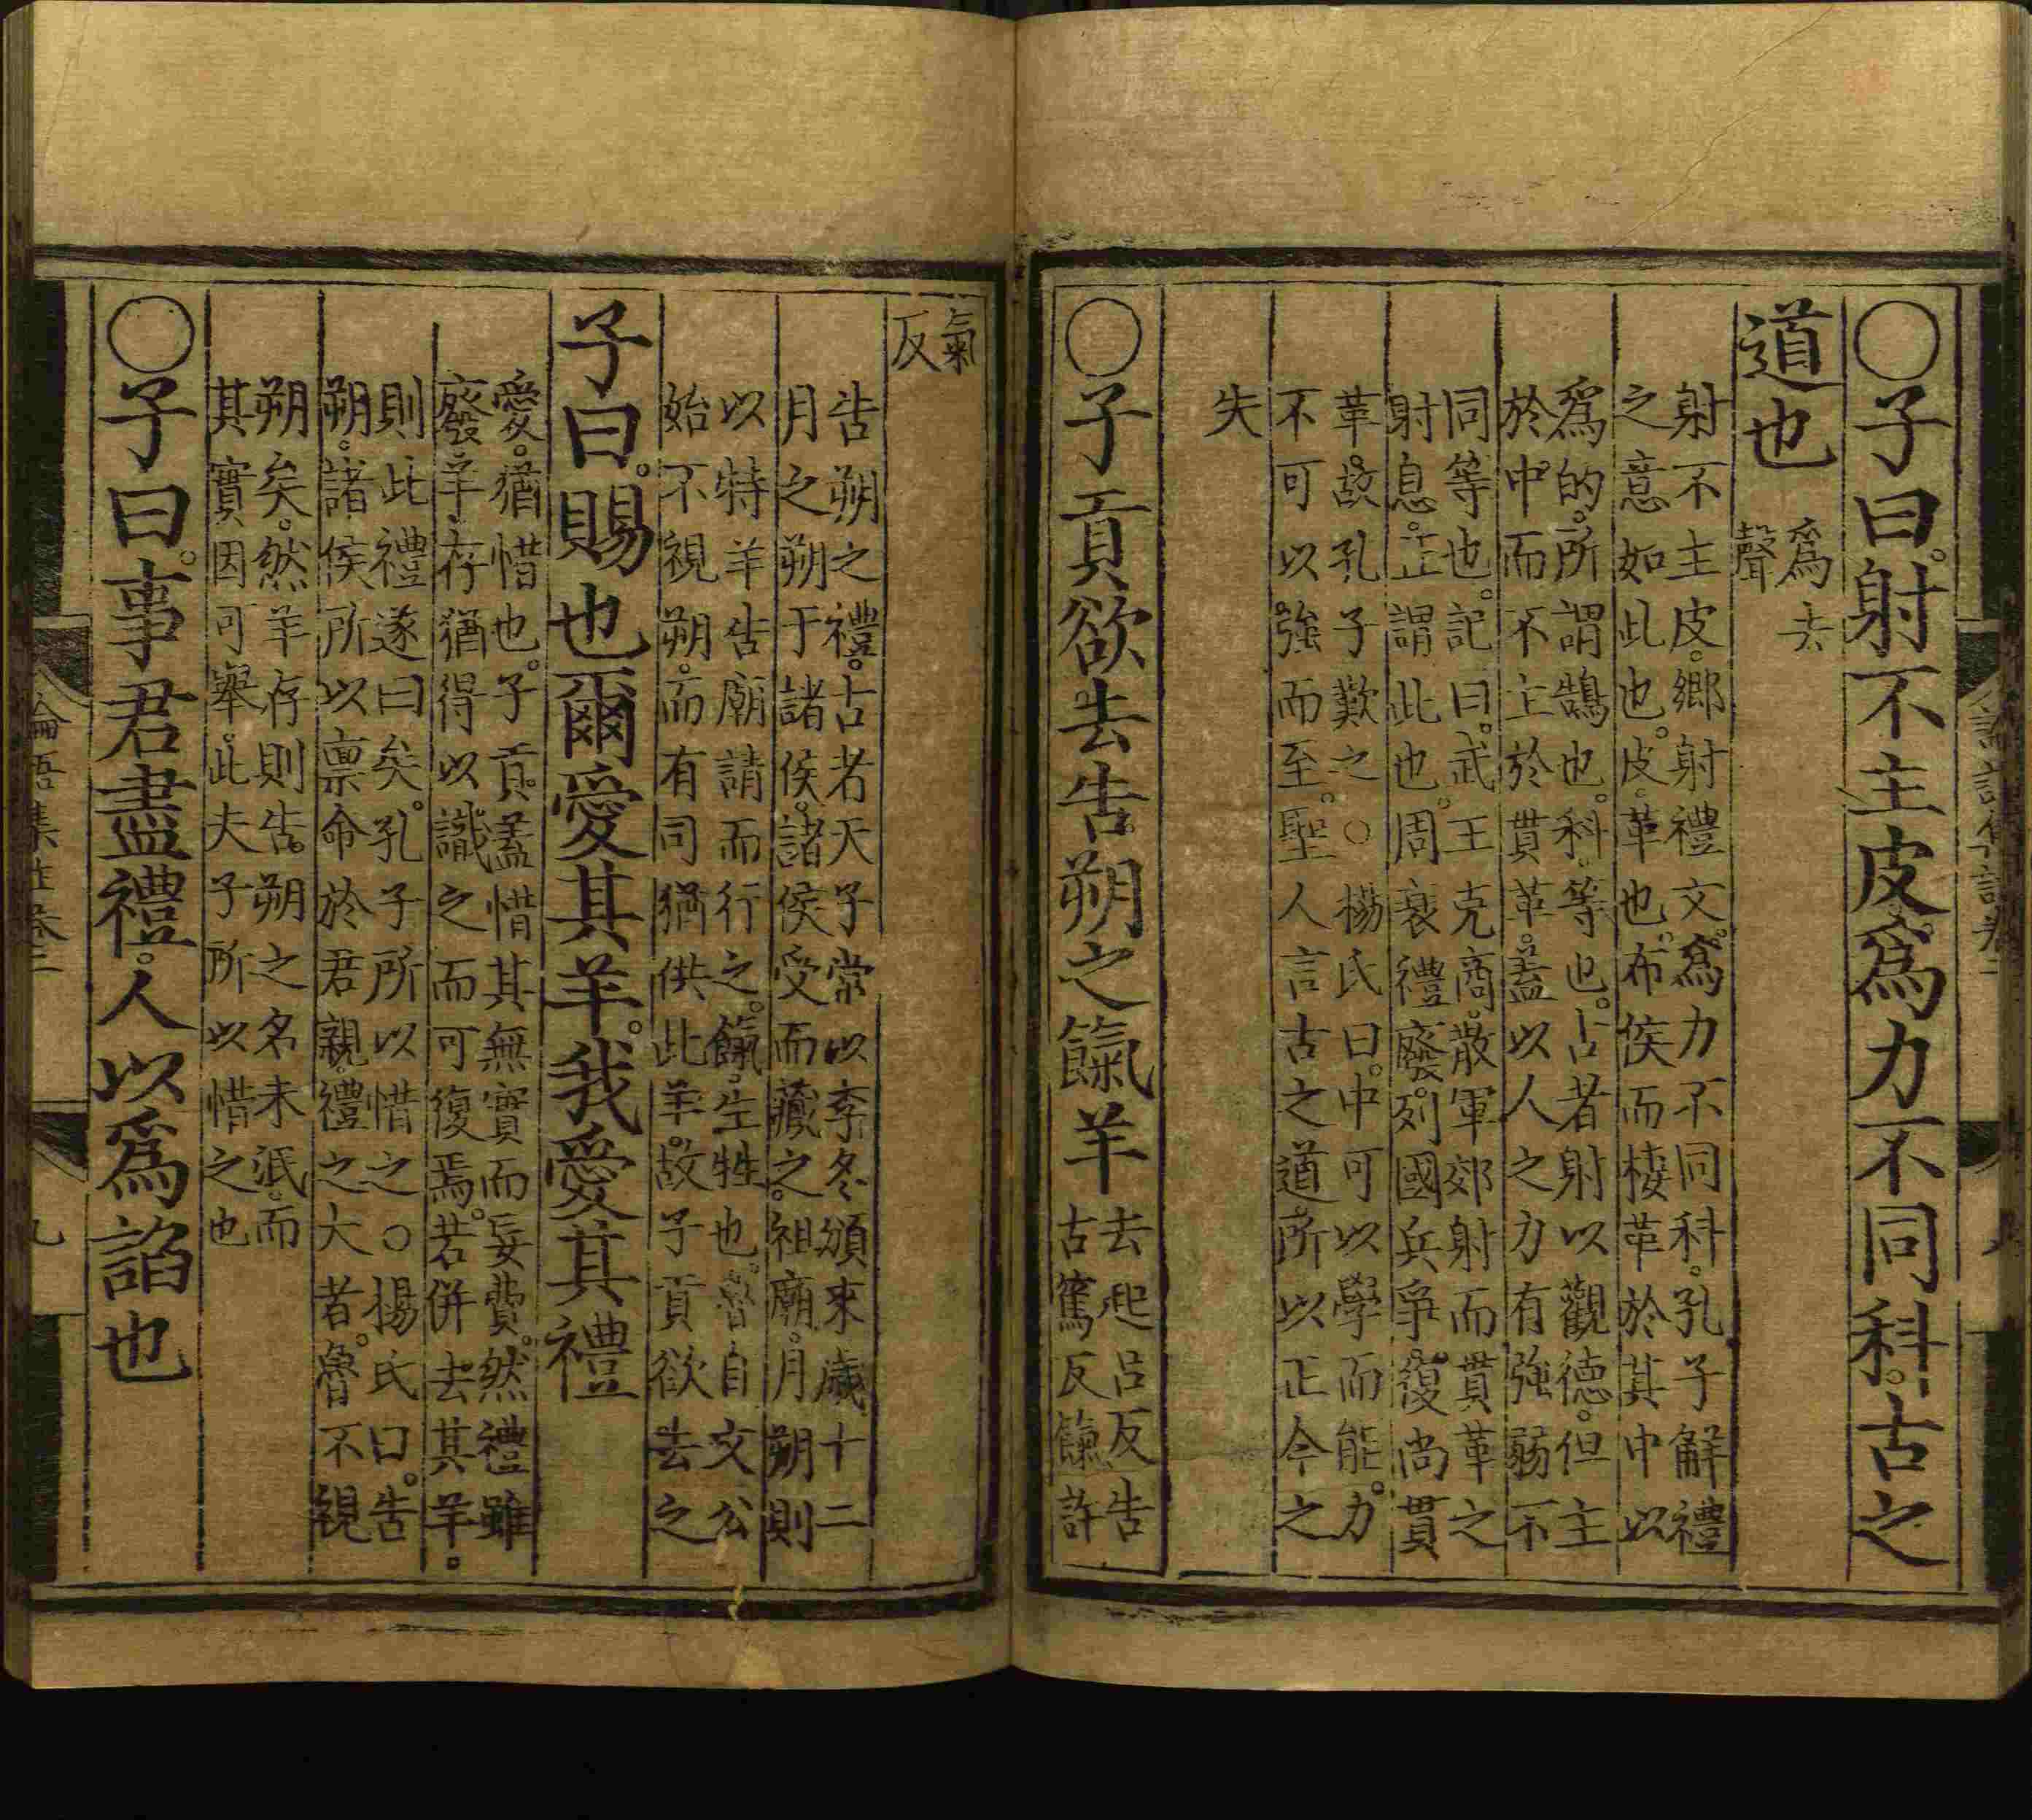 ○子曰。射不主皮。爲力不同科。古之
道也
爲去
聲
射不主皮。鄉射禮文。爲力不同科。孔子解禮
之意如此也。皮。革也。布侯而棲革於其中以
爲的。所謂鵠也。科。等也。古者射以觀德。但主
於中。而不主於貫革。蓋以人之力有強弱不
同等也。記曰。武王克商。散軍郊射而貫革之
射息。正謂此也。周衰禮廢。列國兵爭。復尚貫
革。故孔子歎之。○楊氏曰。中可以學而能。力
不可以強而至。聖人言古之道所以正今之
失
○子貢欲去告朔之餼羊
去起呂反告
古篤反餼許
氣
反
告朔之禮。古者天子常以季冬頒來歲十二
月之朔于諸侯。諸侯受而藏之祖廟。月朔則
以特羊告廟請而行之。餼。生牲也。魯自文公
始不視朔。而有司猶供此羊。故子貢欲去之
子曰。賜也爾愛其羊。我愛其禮
愛。猶惜也。子貢。蓋惜其無實而妄費。然禮雖
廢。羊存猶得以識之而可復焉。若併去其羊。
則此禮遂曰矣。孔子所以惜之。○楊氏曰。告
朔。諸侯所以禀命於君親。禮之大者。魯不視
朔矣。然羊存則告朔之名未泯。而
其實因可舉。此夫子所以惜之也
○子曰。事君盡禮。人以爲諂也
論語集註卷二
九